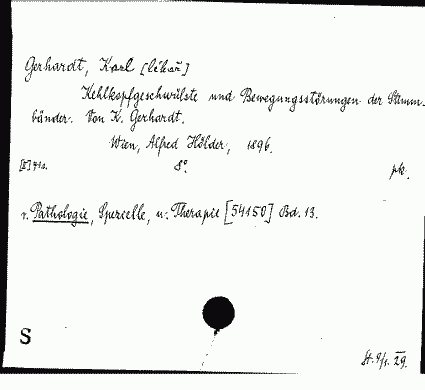 Gerhardt, Karl [lékař]
Kehlkopfgeschwülste und Bewegungsstörungen der Stimm-
bänder. Von K. Gerhardt.
Wien, Alfred Hölder, 1896.
8°. pk.
v. Pathologie, Specielle, u. Therapie [54150] Bd. 13.
S
St. 9/1. 29.